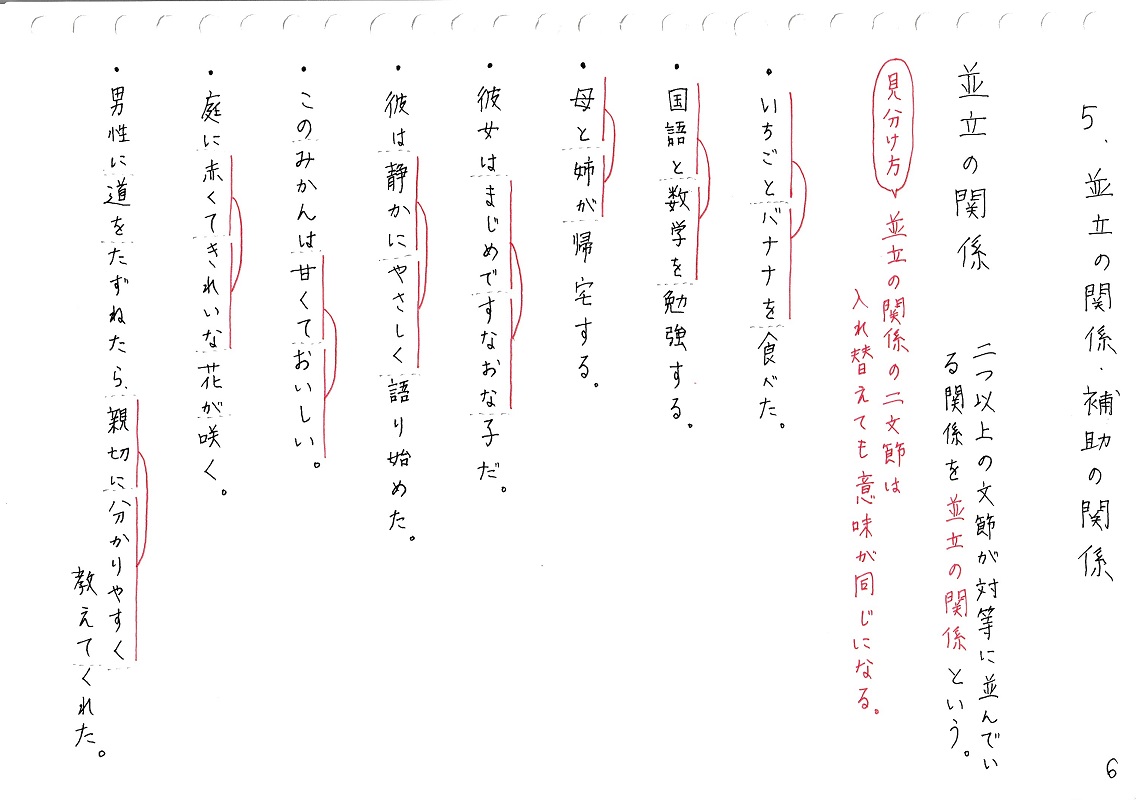 5、並立の関係・補助の関係
並立の関係
二つ以上の文節が対等に並んでい
る関係を並立の関係という。
見分け方
並立の関係の二文節は
入れ替えても意味が同じになる。
・いちごとバナナを食べた。
・国語と数学を勉強する。
・母と姉が帰宅する。
・彼女はまじめですなおな子だ。
・彼は静かにやさしく語り始めた。
・このみかんは甘くておいしい。
・庭に赤くてきれいな花が咲く。
・男性に道をたずねたら、親切に分かりやすく
教えてくれた。
6